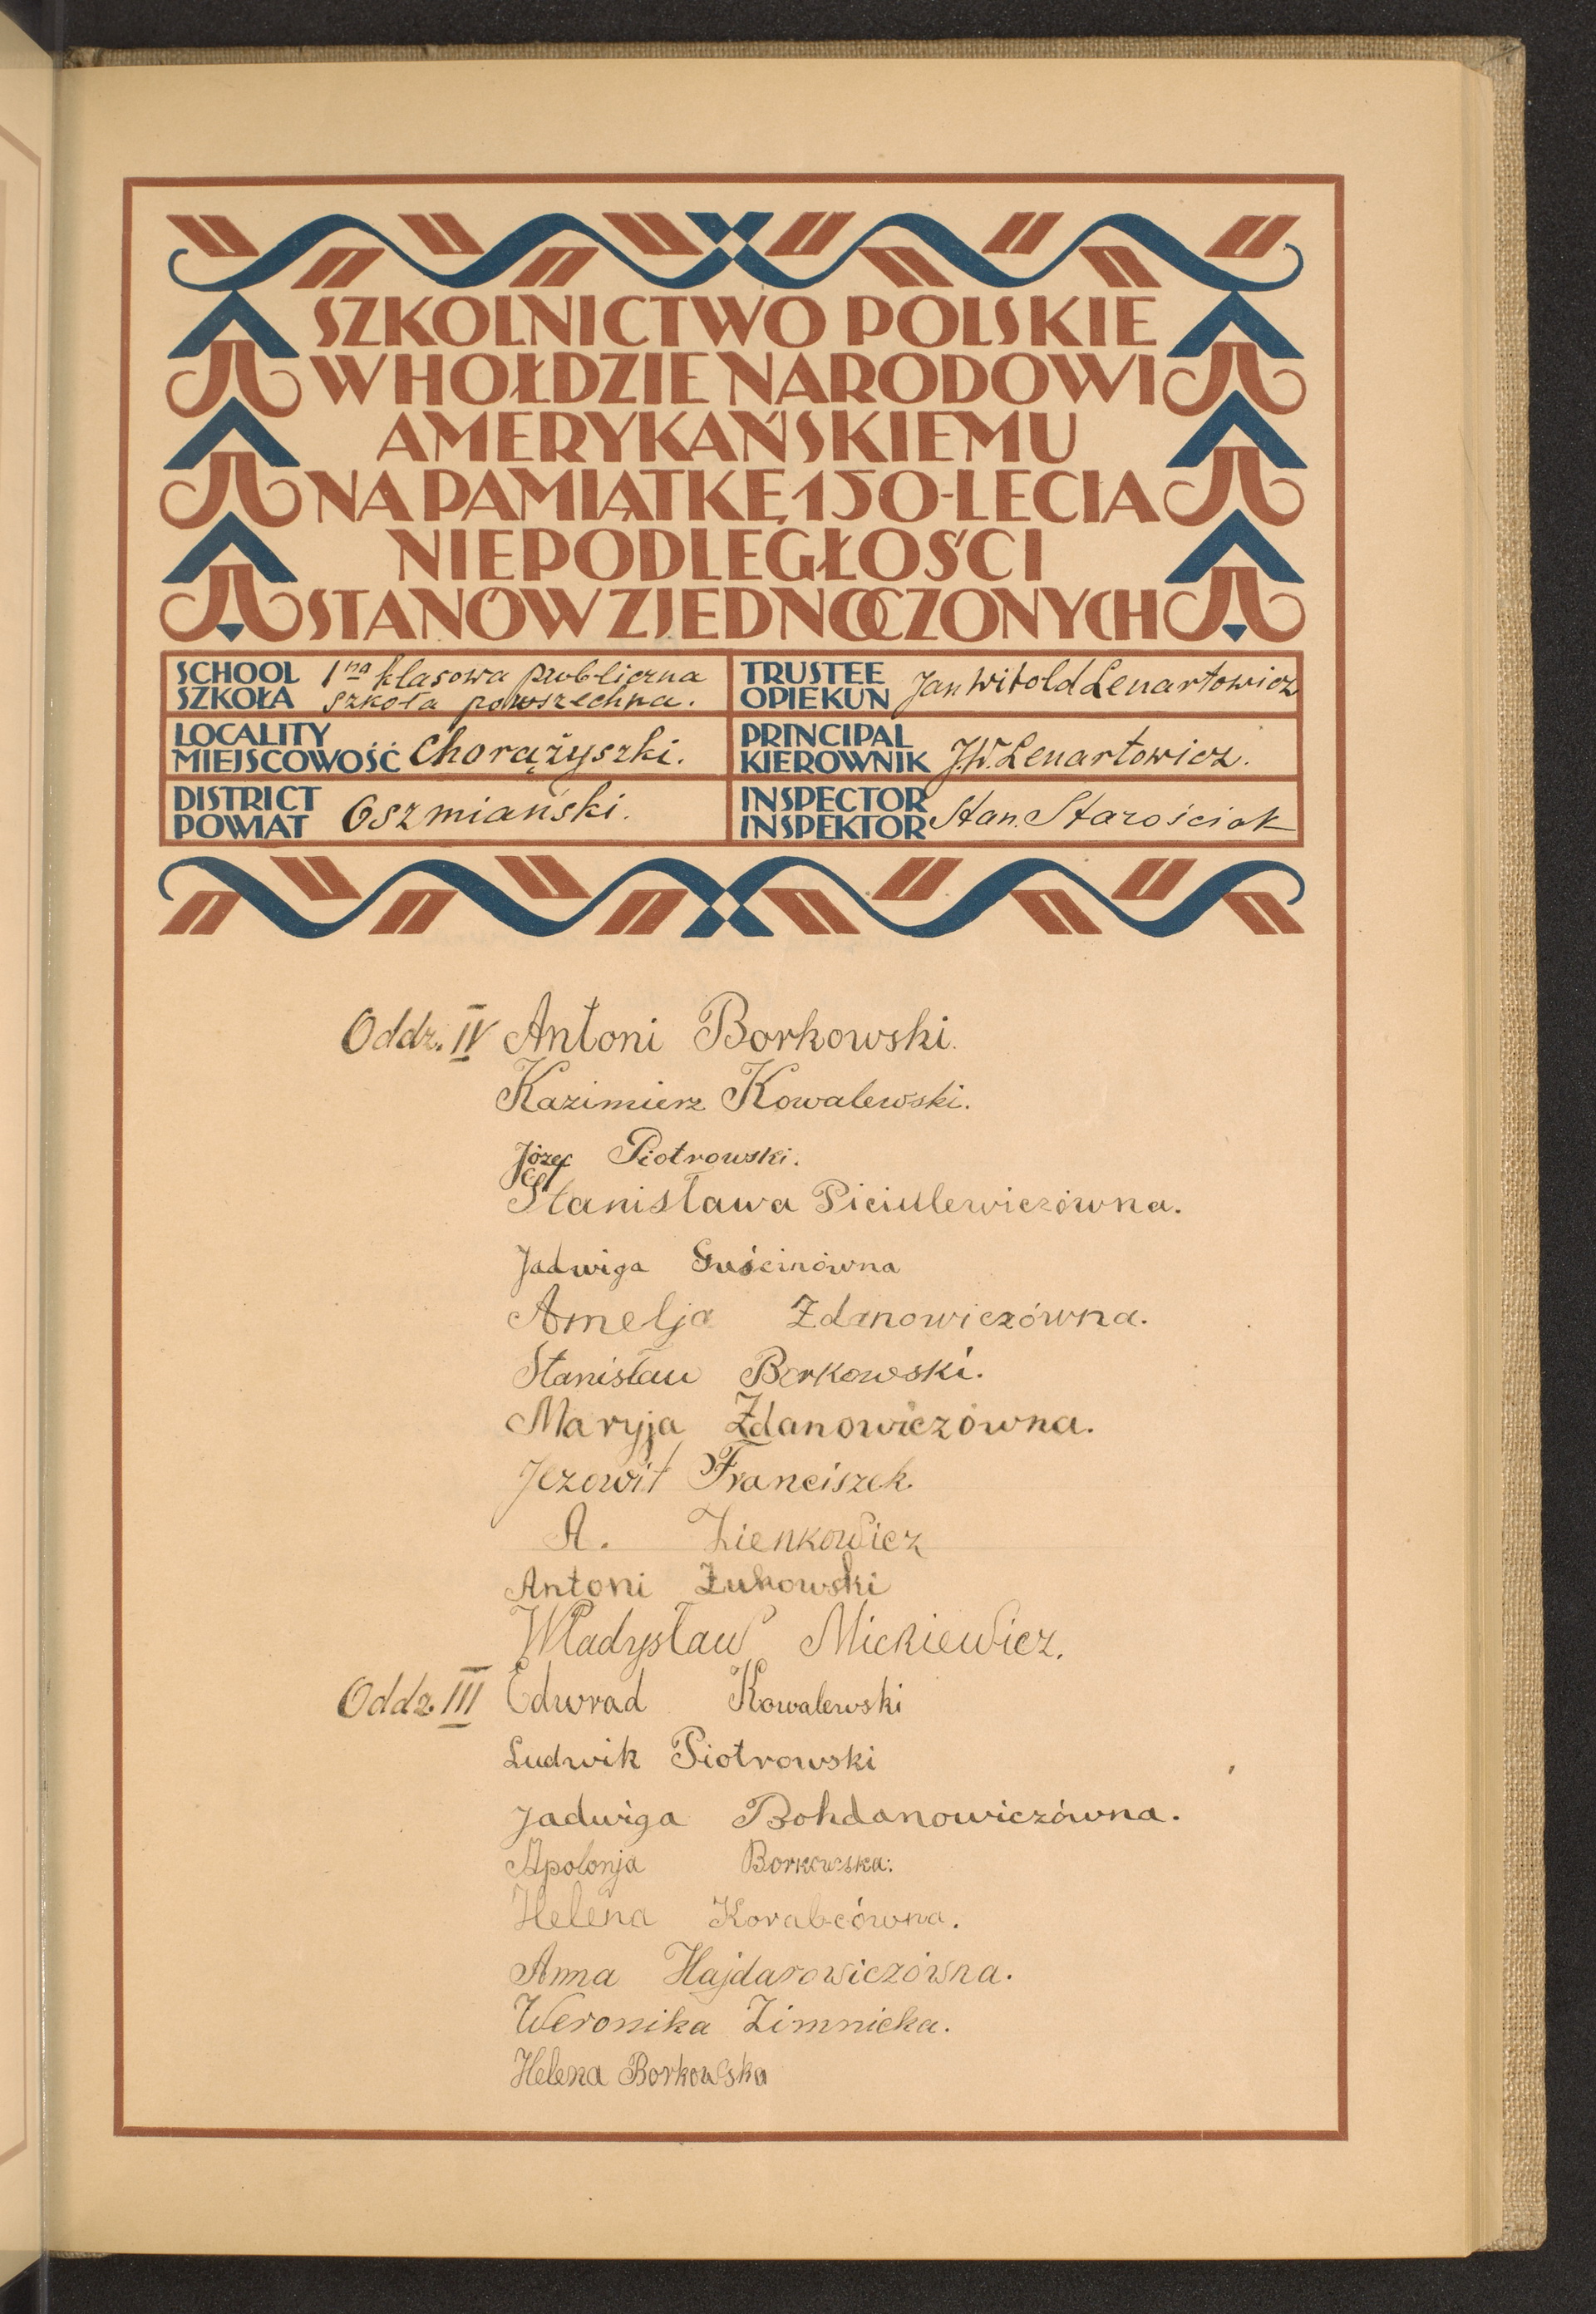 SZKOLNICTWO POLSKIE
W HOŁDZIE NARODOWI
AMERYKAŃSKIEMU
NA PAMIĄTKĘ 150-LECIA
NIEPODLEGŁOŚCI
STANÓW ZJEDNOCZONYCH
SCHOOL SZKOŁA 1na klasowa publiczna szkoła powszechna.
TRUSTEE OPIEKUN Jan Witold Lenartowicz
LOCALITY MIEJSCOWOŚĆ Chorążyszki.
PRINCIPAL KIEROWNIK J.W. Lenartowicz.
DISTRICT POWIAT Oszmiański.
INSPECTOR INSPEKTOR Stan. Starościak
Oddz. IV Antoni Borkowski.
Kazimierz Kowalewski.
Józef Piotrowski.
Stanisława Piciulewiczówna.
Jadwiga Guścinówna
Amelja Zdanowiczówna.
Stanisław Borkowski.
Maryja Zdanowiczówna.
Jezowit Franciszek.
A. Zienkowicz
Antoni Żukowski
Władysław Mickiewicz.
Oddz. III Edwrad Kowalewski
Ludwik Piotrowski
Jadwiga Bohdanowiczówna.
Apolonja Borkowska.
Helena Korabcówna.
Anna Hajdarowiczówna.
Weronika Zimnicka.
Helena Borkowska